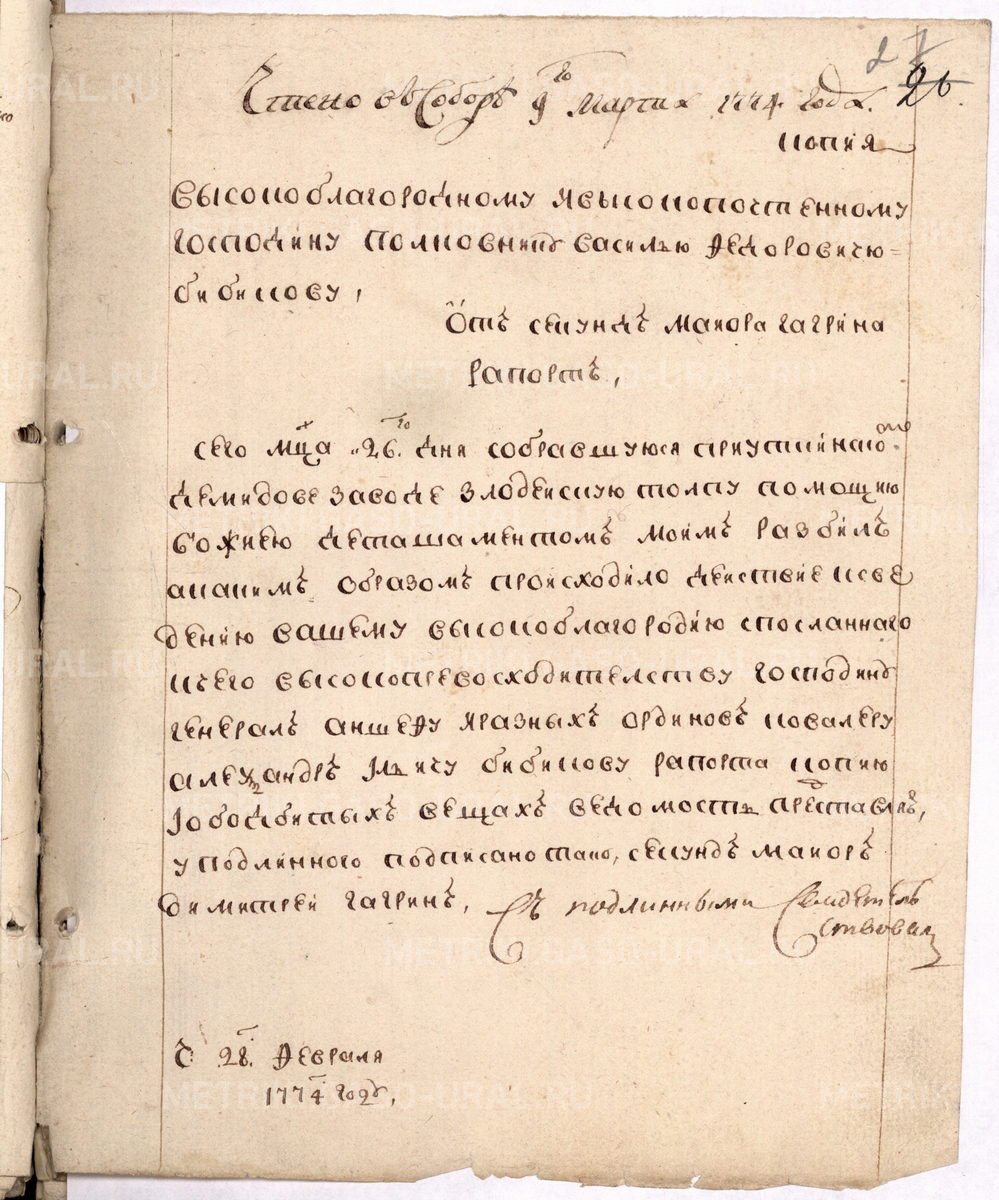 27
26.
Чтено въ Соборѣ 9го Марта 1774 года.
копия
высокоблагородному ивысокопочтенному
господину полковнику василью федоровичю
бибикову,
Отъ секундъ маиора гагрина
рапортъ,
сего мца 26го дня собравшуюся приуткинскомъ
демидове заводе злодейскую толпу помощию
божиею деташаментомъ моимъ разбилъ
акакимъ образомъ происходило действие ксве
дению вашему высокоблагородию спосланнаго
кчего высокопревосходителству господину
генералъ аншефу иразныхъ ординовъ ковалеру
александръ ильичу бибикову рапорта копию
Iободбитыхъ вещахъ ведомость представляю,
уподлинного подписано тако, секундъ маиоръ
димитрей гагринъ, Съ подлинными Свидетель
ствовал
Ч 28. февраля
1774 году,
METRIKI.RU-URAL.RU